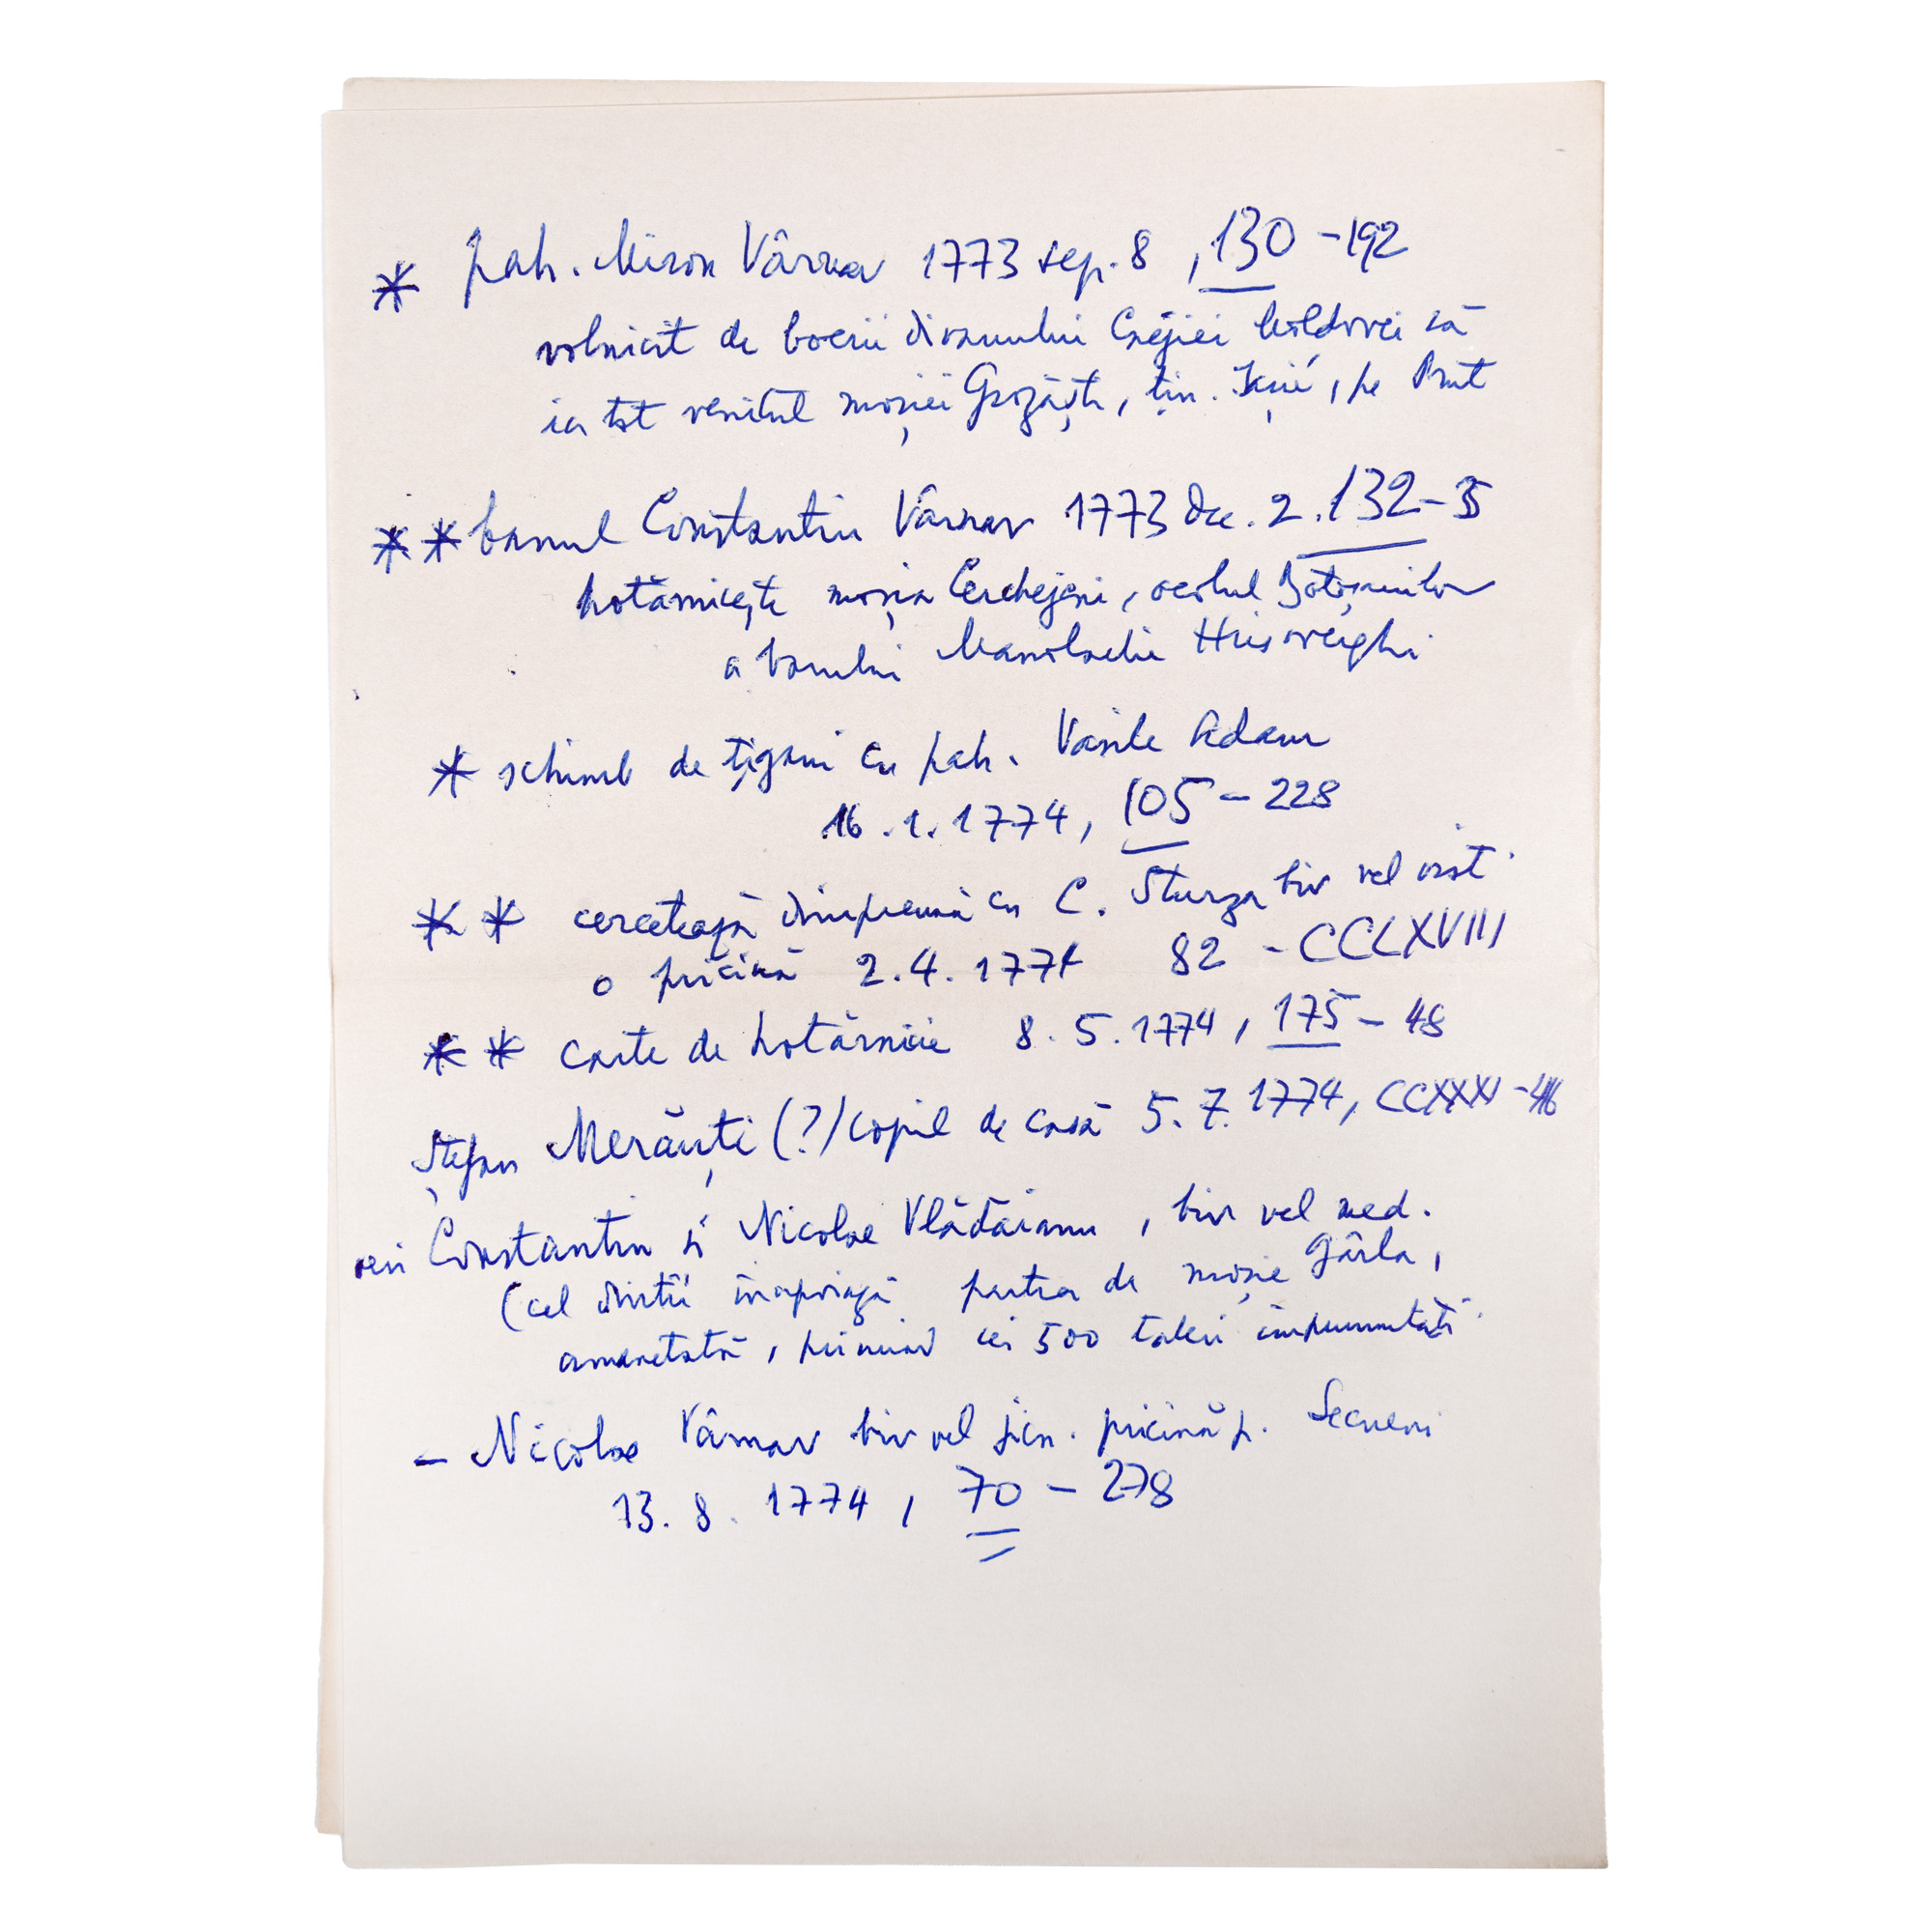 * pah. Miron Vârnav 1773 sep. 8, 130-192
volnicit de boerii divanului Cnejiei Moldovei să
ia tot venitul moșiei Grozăști, țin. Iașii, pe Prut
** banul Constantin Vârnav 1773 dec. 2. 132-35
hotărnicește moșia Cerchejeni, ocolul Botoșanilor
a banului Manolachi Hrisoverghi
* schimb de țigani cu pah. Vasile Adam
16.1.1774, 105-228
** cercetează dimpreună cu C. Sturza biv vel vist.
o pricină 2.4.1774 82 - CCLXVIII
** carte de hotărnicie 8.5.1774, 175-48
Ștefan Merăuți (?) copil de casă 5.7.1774, CCXXXI -
veri Constantin și Nicolae Vlădăianu, biv vel med.
(cel dintîi înapoiază partea de moșie Gârla,
amanetată, primind cei 500 taleri împrumutați.
- Nicolae Vârnav biv vel jicn. pricină p. Secueni
13.8.1774, 70-278